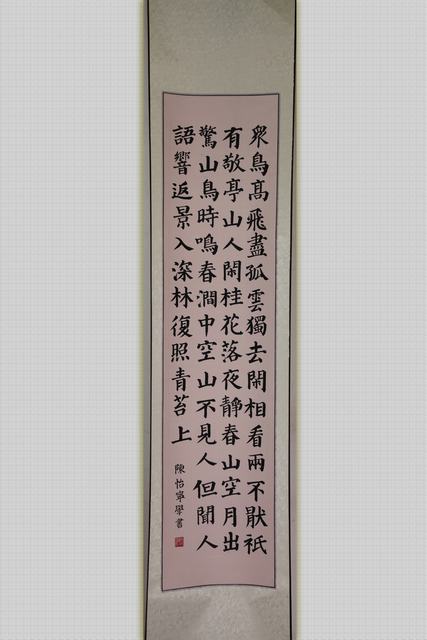 衆鳥高飛盡孤雲獨去閑相看兩不猒祇
有敬亭山人閑桂花落夜靜春山空月出
驚山鳥時鳴春澗中空山不見人但聞人
語響返景入深林復照青苔上
陳怡寧學書